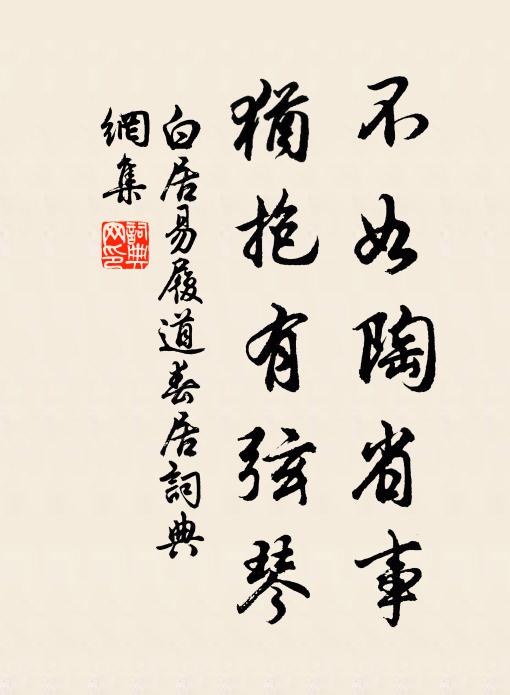 不如陶省事
猶抱有弦琴
白居易履道春居詞典
網集
詞典
网印